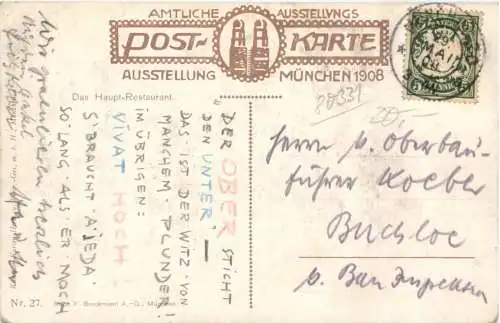 AMTLICHE AUSSTELLUNGS
POST- KARTE
AUSSTELLUNG MÜNCHEN 1908
Das Haupt-Restaurant.
"DER OBER STICHT
DEN UNTER", —
DAS IST DER WITZ VON
MANCHEM PLUNDER!
IM ÜBRIGEN:
VIVAT HOCH!
S'BRAUCHT A JEDA
SO LANG ALS ER MOCH
Wir gratulieren herzlich
20331
20,-
Herrn k. Oberbau-
führer Koeber
Buchloe
k. Bau Inspektion
Nr. 27.
F. Bruckmann A.-G., München